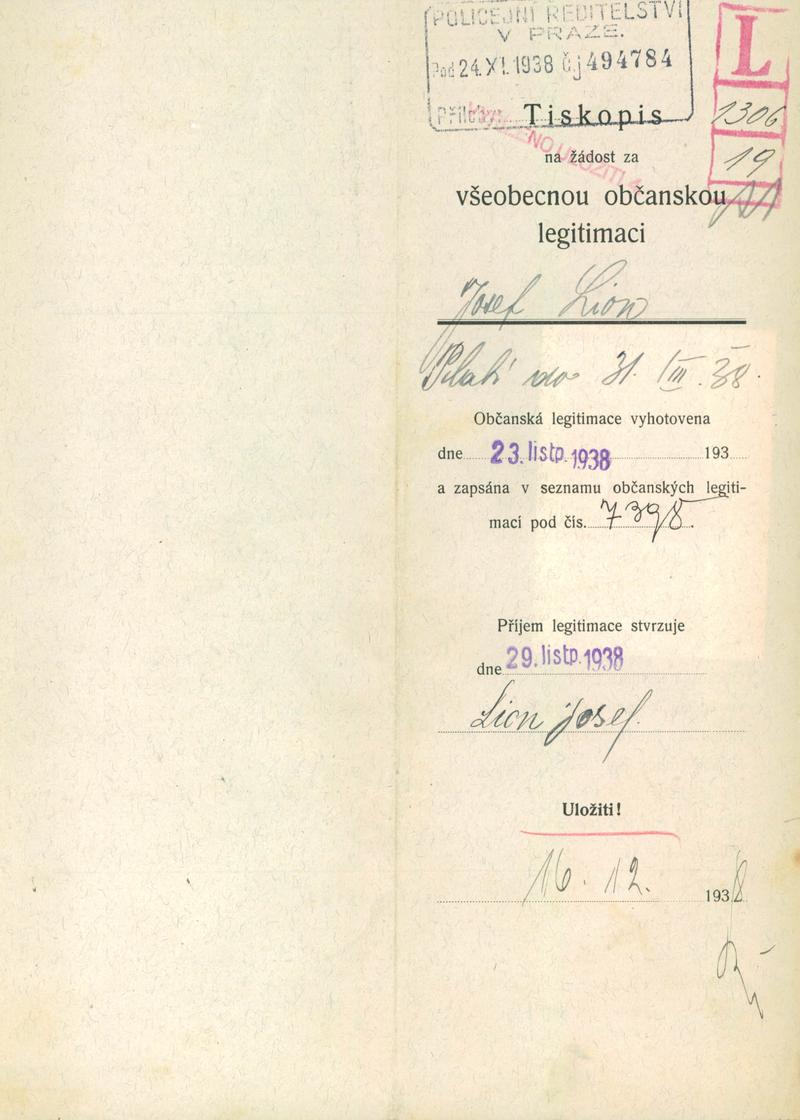 POLICEJNÍ ŘEDITELSTVÍ
V PRAZE.
Pod 24.XI.1938 čj 494784
Příloh
L
1306
19
Tiskopis
na žádost za
všeobecnou občanskou
legitimaci
Josef Lion
Platí do 31. III. 38.
Občanská legitimace vyhotovena
dne 23. listp. 1938 193
a zapsána v seznamu občanských legiti-
mací pod čís. 7398.
Příjem legitimace stvrzuje
dne 29. listp. 1938
Lion Josef.
Uložiti!
16. 12. 1938